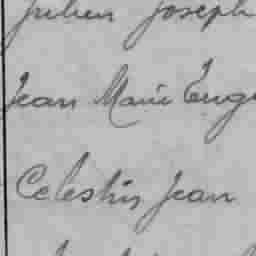 Julien Joseph
Jean Marie Eug
Celestin Jean